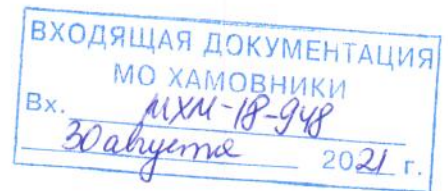 ВХОДЯЩАЯ ДОКУМЕНТАЦИЯ
МО ХАМОВНИКИ
Вх. МХМ-18-948
30 августа 2021 г.